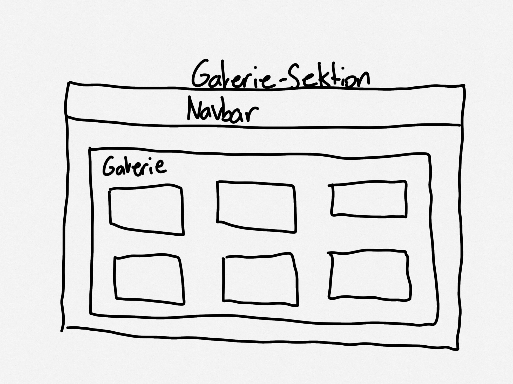 Galerie-Sektion
Navbar
Galerie